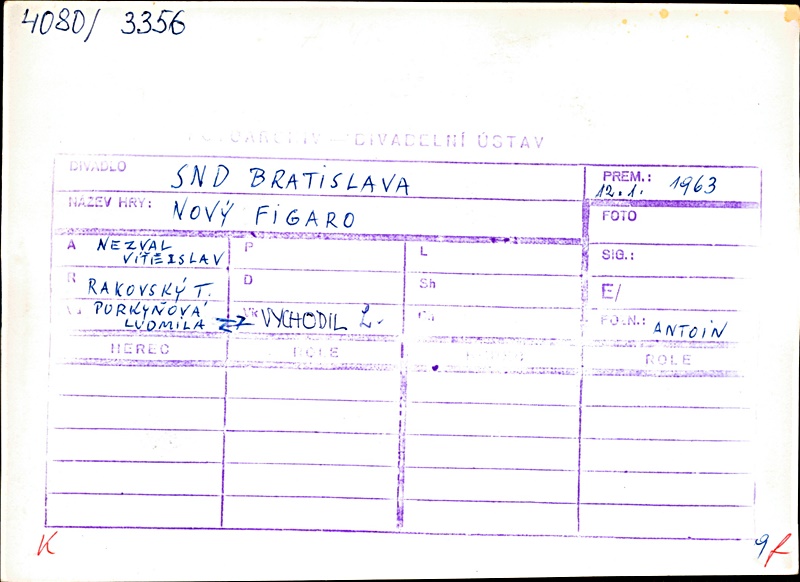 4080/ 3356
FOTOARCHIV – DIVADELNÍ ÚSTAV
DIVADLO SND BRATISLAVA
PREM.: 12.1. 1963
NÁZEV HRY: NOVÝ FIGARO
FOTO
A NEZVAL
VÍTĚZSLAV
P
L
SIG.:
R RAKOVSKÝ T.
D
Sh
E/
PURKYŇOVÁ
LUDMILA
VYCHODIL L.
POZN.: ANTOIN
HEREC ROLE HEREC ROLE
K
9 f